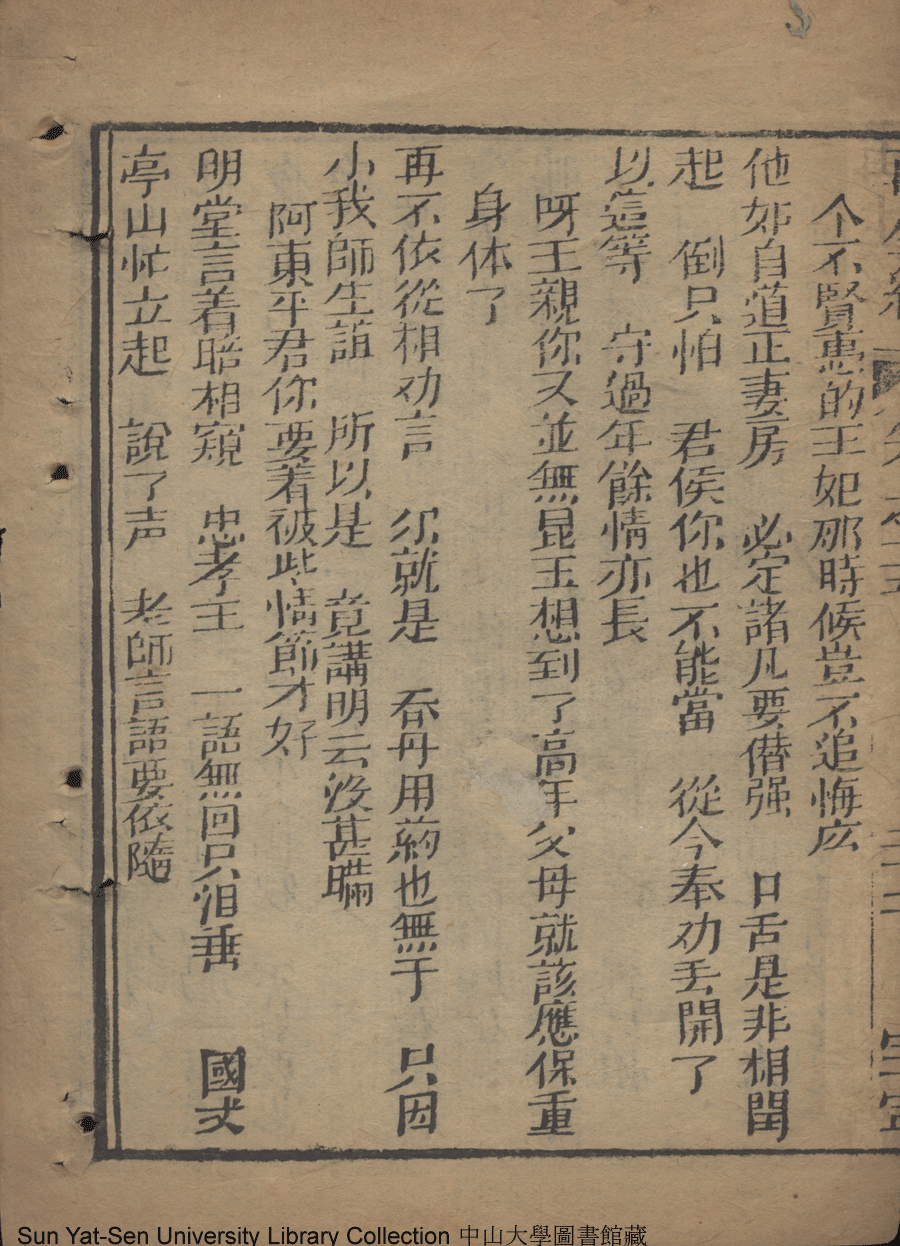 个不賢惠的王妃那時候豈不追悔庅
他如自道正妻房　必定諸凡要僣强　口舌是非相閙
起　倒只怕　君侯你也不能當　從今奉劝丢開了
以這等　守過年餘情亦長
呀王親你又並無昆玉想到了高年父母就該應保重
身体了
再不依從相劝言　尔就是　吞丹用药也無于　只因
小我師生誼　所以是　竟講明云没甚瞞
阿東平君你要着彼些情節才好
明堂言着晧相窺　忠孝王　一語無回只泪垂　國丈
亭山忙立起　說了声　老師言語要依隨
Sun Yat-Sen University Library Collection 中山大學圖書館藏